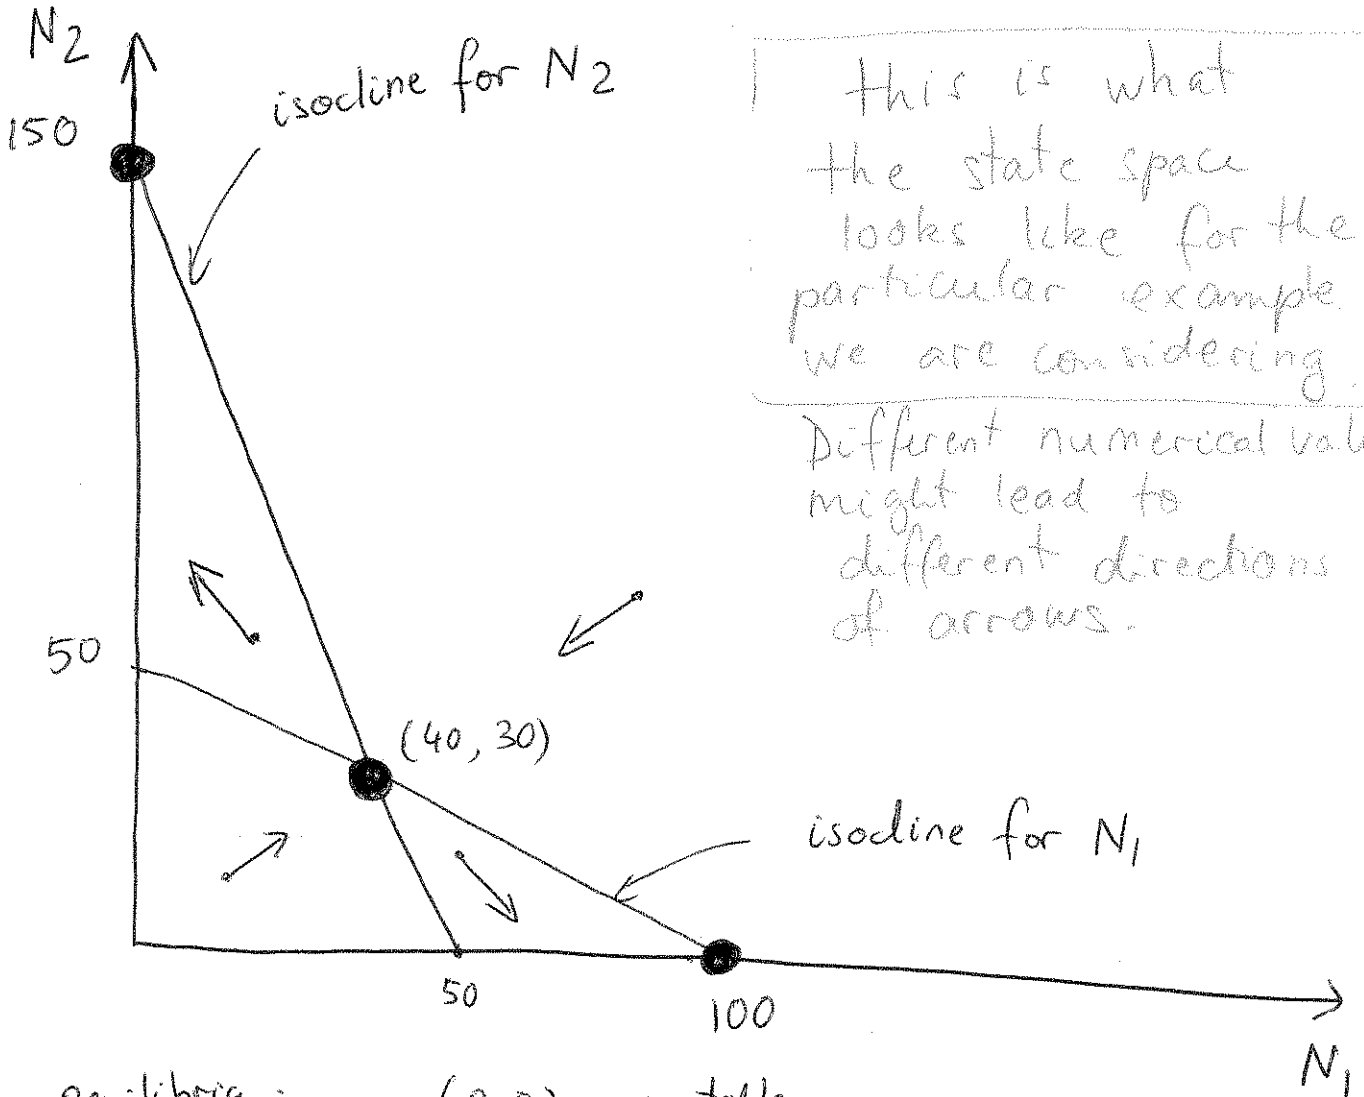 N2
150
isocline for N2
this is what
the state space
looks like for the
particular example
we are considering.
Different numerical
might lead to
different directions
of arrows.
50
(40, 30)
isocline for N1
50
100
N1